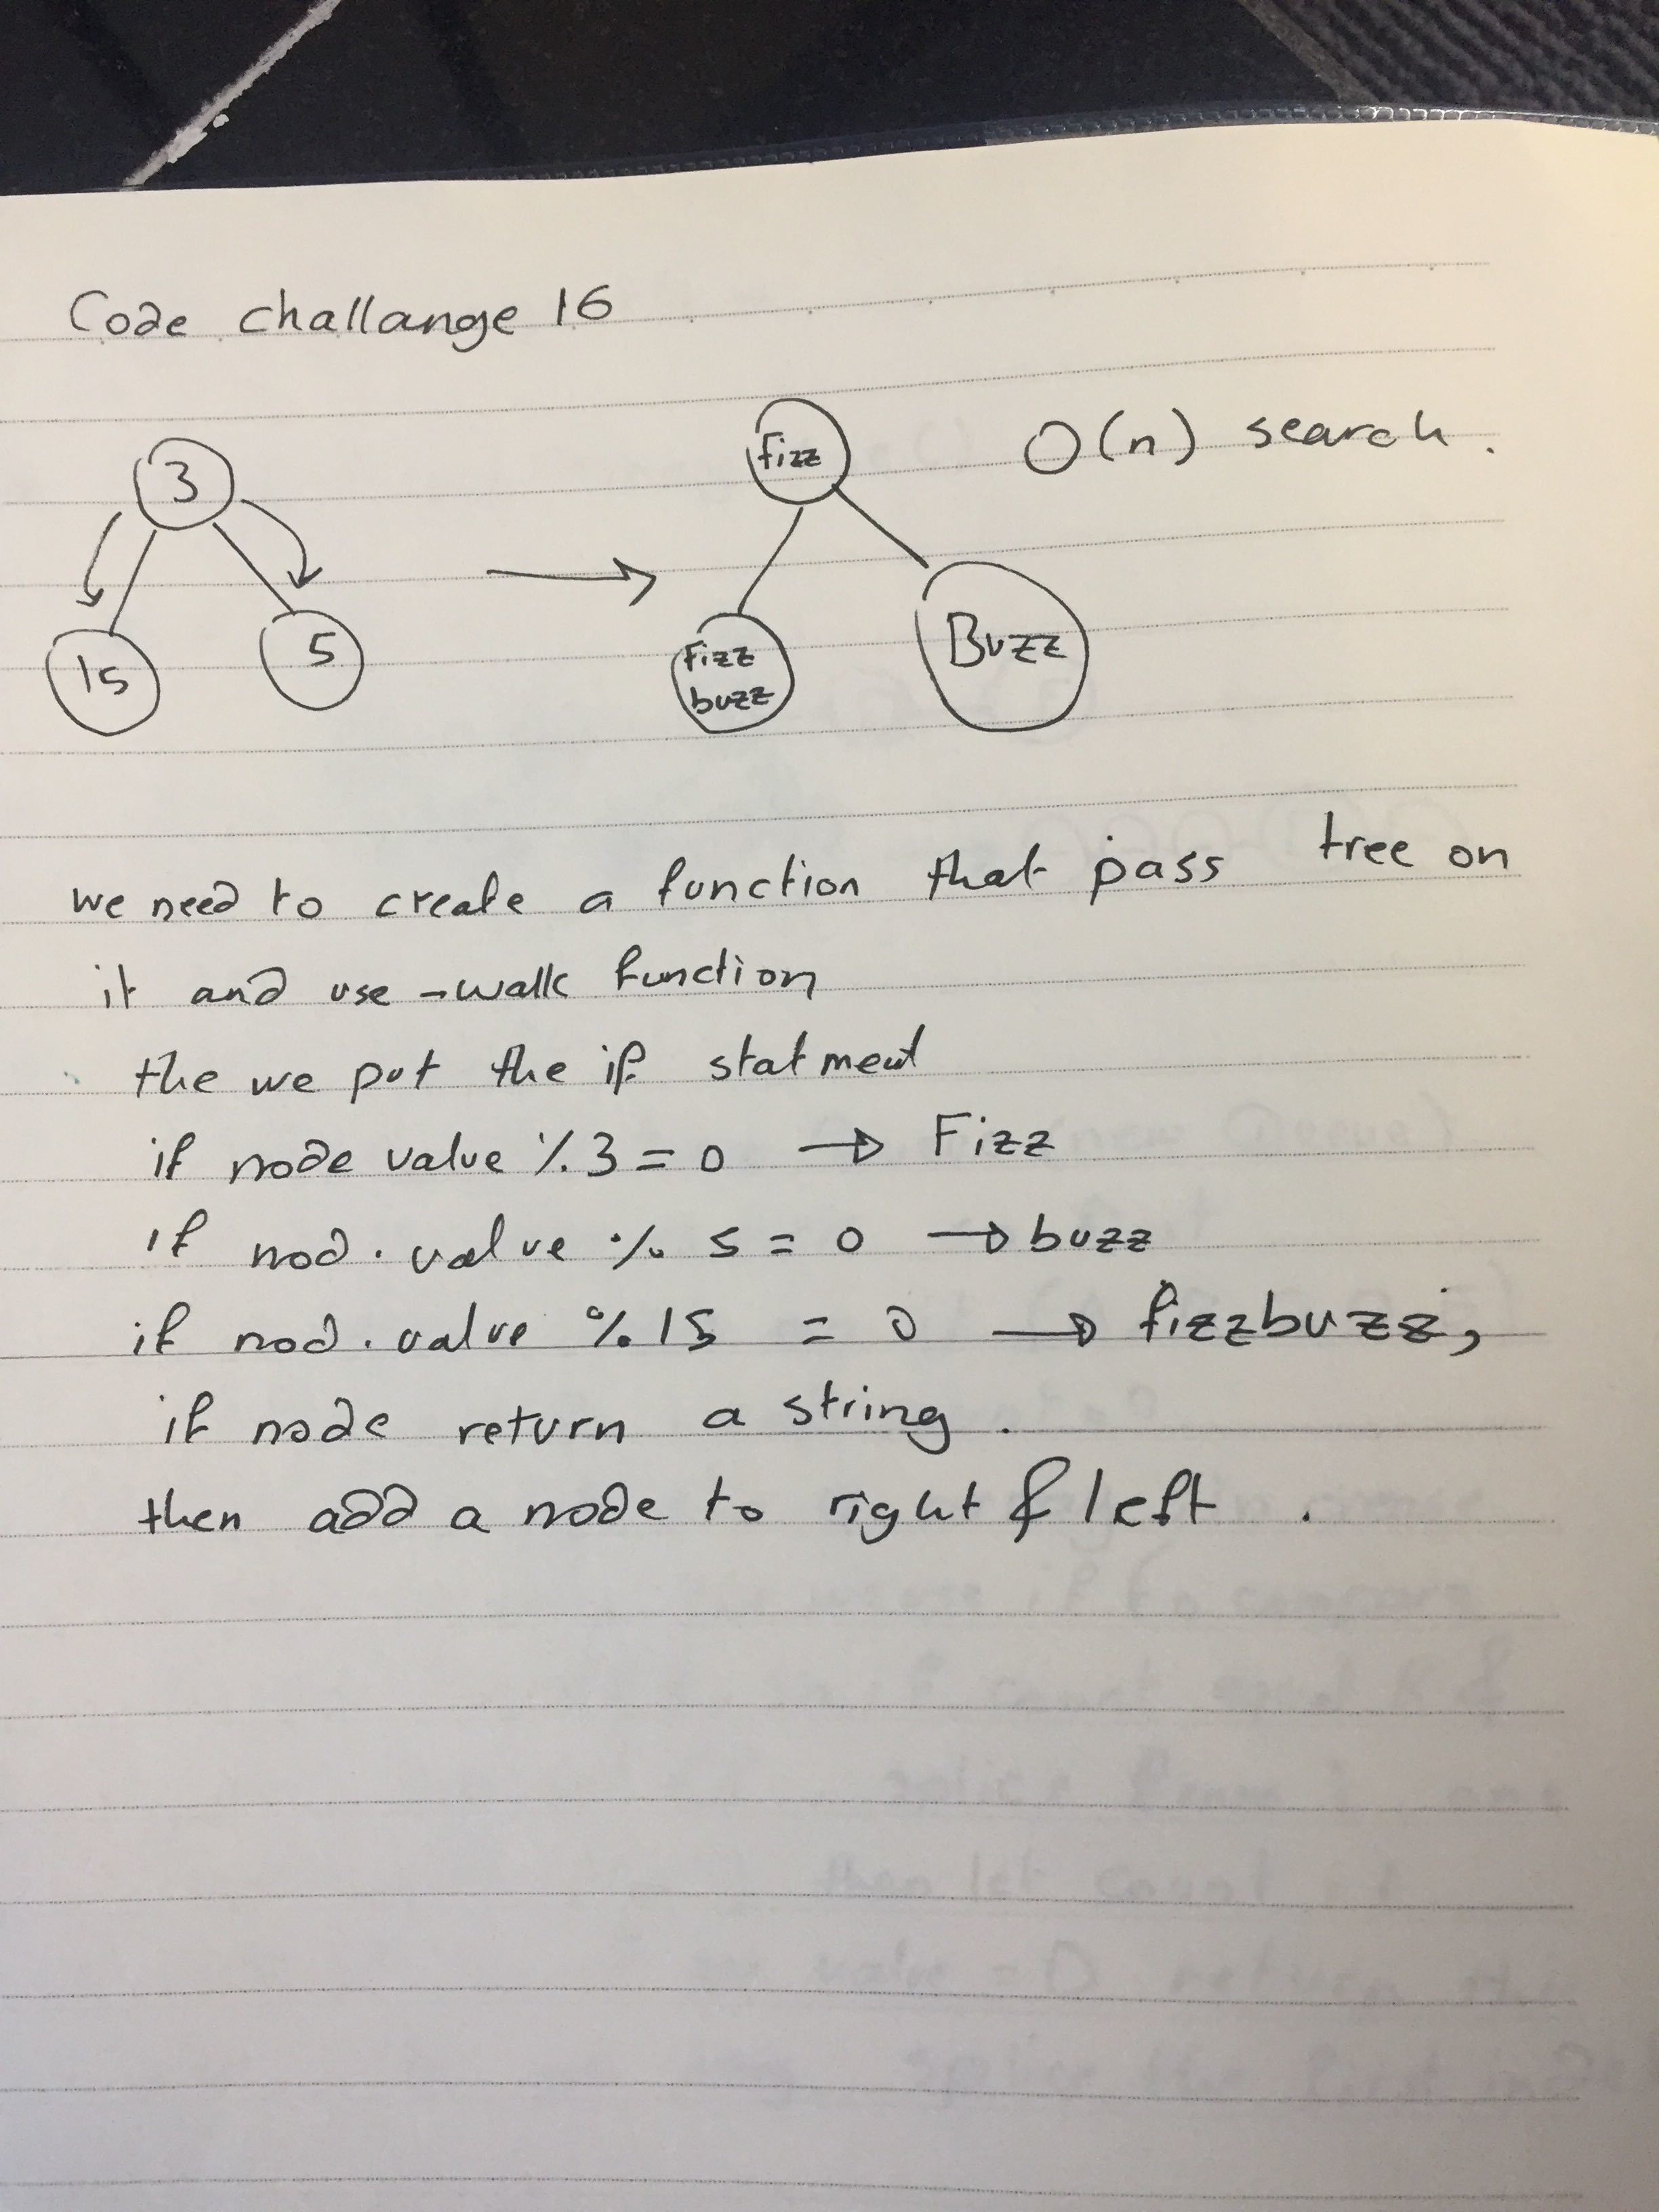 Code challange 16
3
15
5
fizz
Fizz
buzz
Buzz
O(n) search.
we need to create a function that pass tree on
it and use -walk function
the we put the if statment
if node value % 3 = 0 → Fizz
if nod.value % 5 = 0 → buzz
if nod.value % 15 = 0 → fizzbuzz,
if node return a string.
then add a node to right & left .